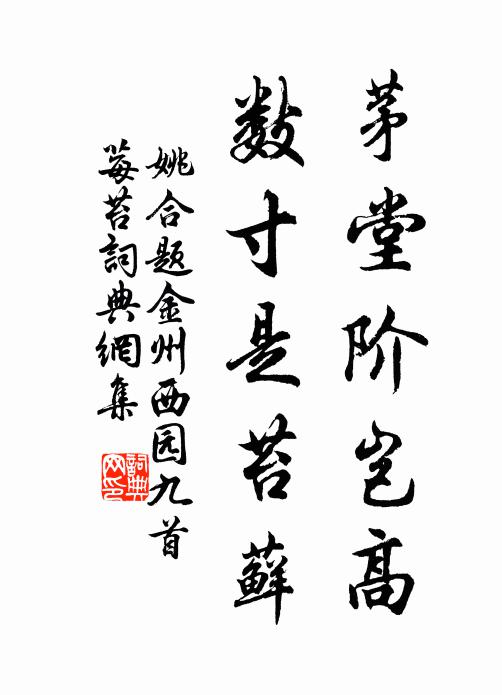 茅堂阶岂高
数寸是苔藓
姚合题金州西园九首
莓苔詞典網集
詞典網印